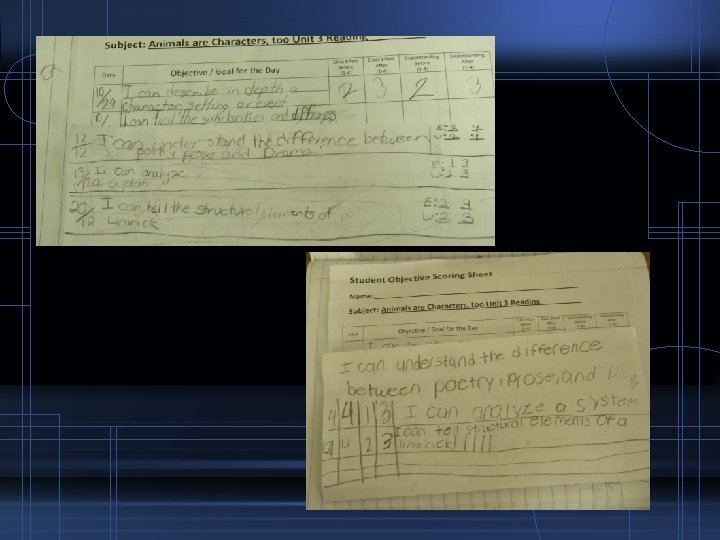 Subject: Animals are Characters, too Unit 3 Reading
Date Objective / Goal for the Day Class Effort Before (1-4) Class Effort After (1-4) Understanding Before (1-4) Understanding After (1-4)
10/29 I can describe in depth a 2 3 2 3
Character, setting or event
10/ I can find the similarities and
12/12 I can understand the difference between E:2 4
poetry prose and Drama
I can analyze E:1 3
a system U:2 3
20/12 I can tell the structural elements of a E:2 4
Limrick U:2 3
Student Objective Scoring Sheet
Name:
Subject: Animals are Characters, too Unit 3 Reading
Date Objective / Goal for the Day
I can understand the difference
between poetry, prose, and
4 4 1 3 I can analyze a system
4 2 3 I can tell structural elements of a
limerick